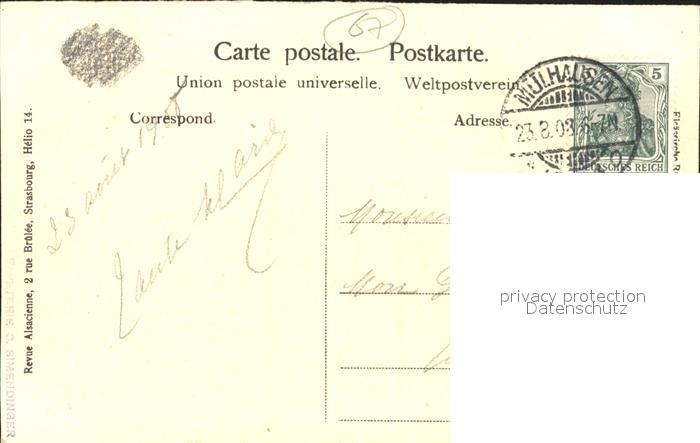 67
Carte postale. Postkarte.
Union postale universelle. Weltpostverein
Correspond.
Adresse.
MÜLHAUSEN
23.8.08. 6-7N
5
DEUTSCHES REICH
23 août 1908
Tante Marie
Monsieur
Mon
privacy protection
Datenschutz
Revue Alsacienne, 2 rue Brûlée, Strasbourg, Hélio 14.
SIMENDINGER